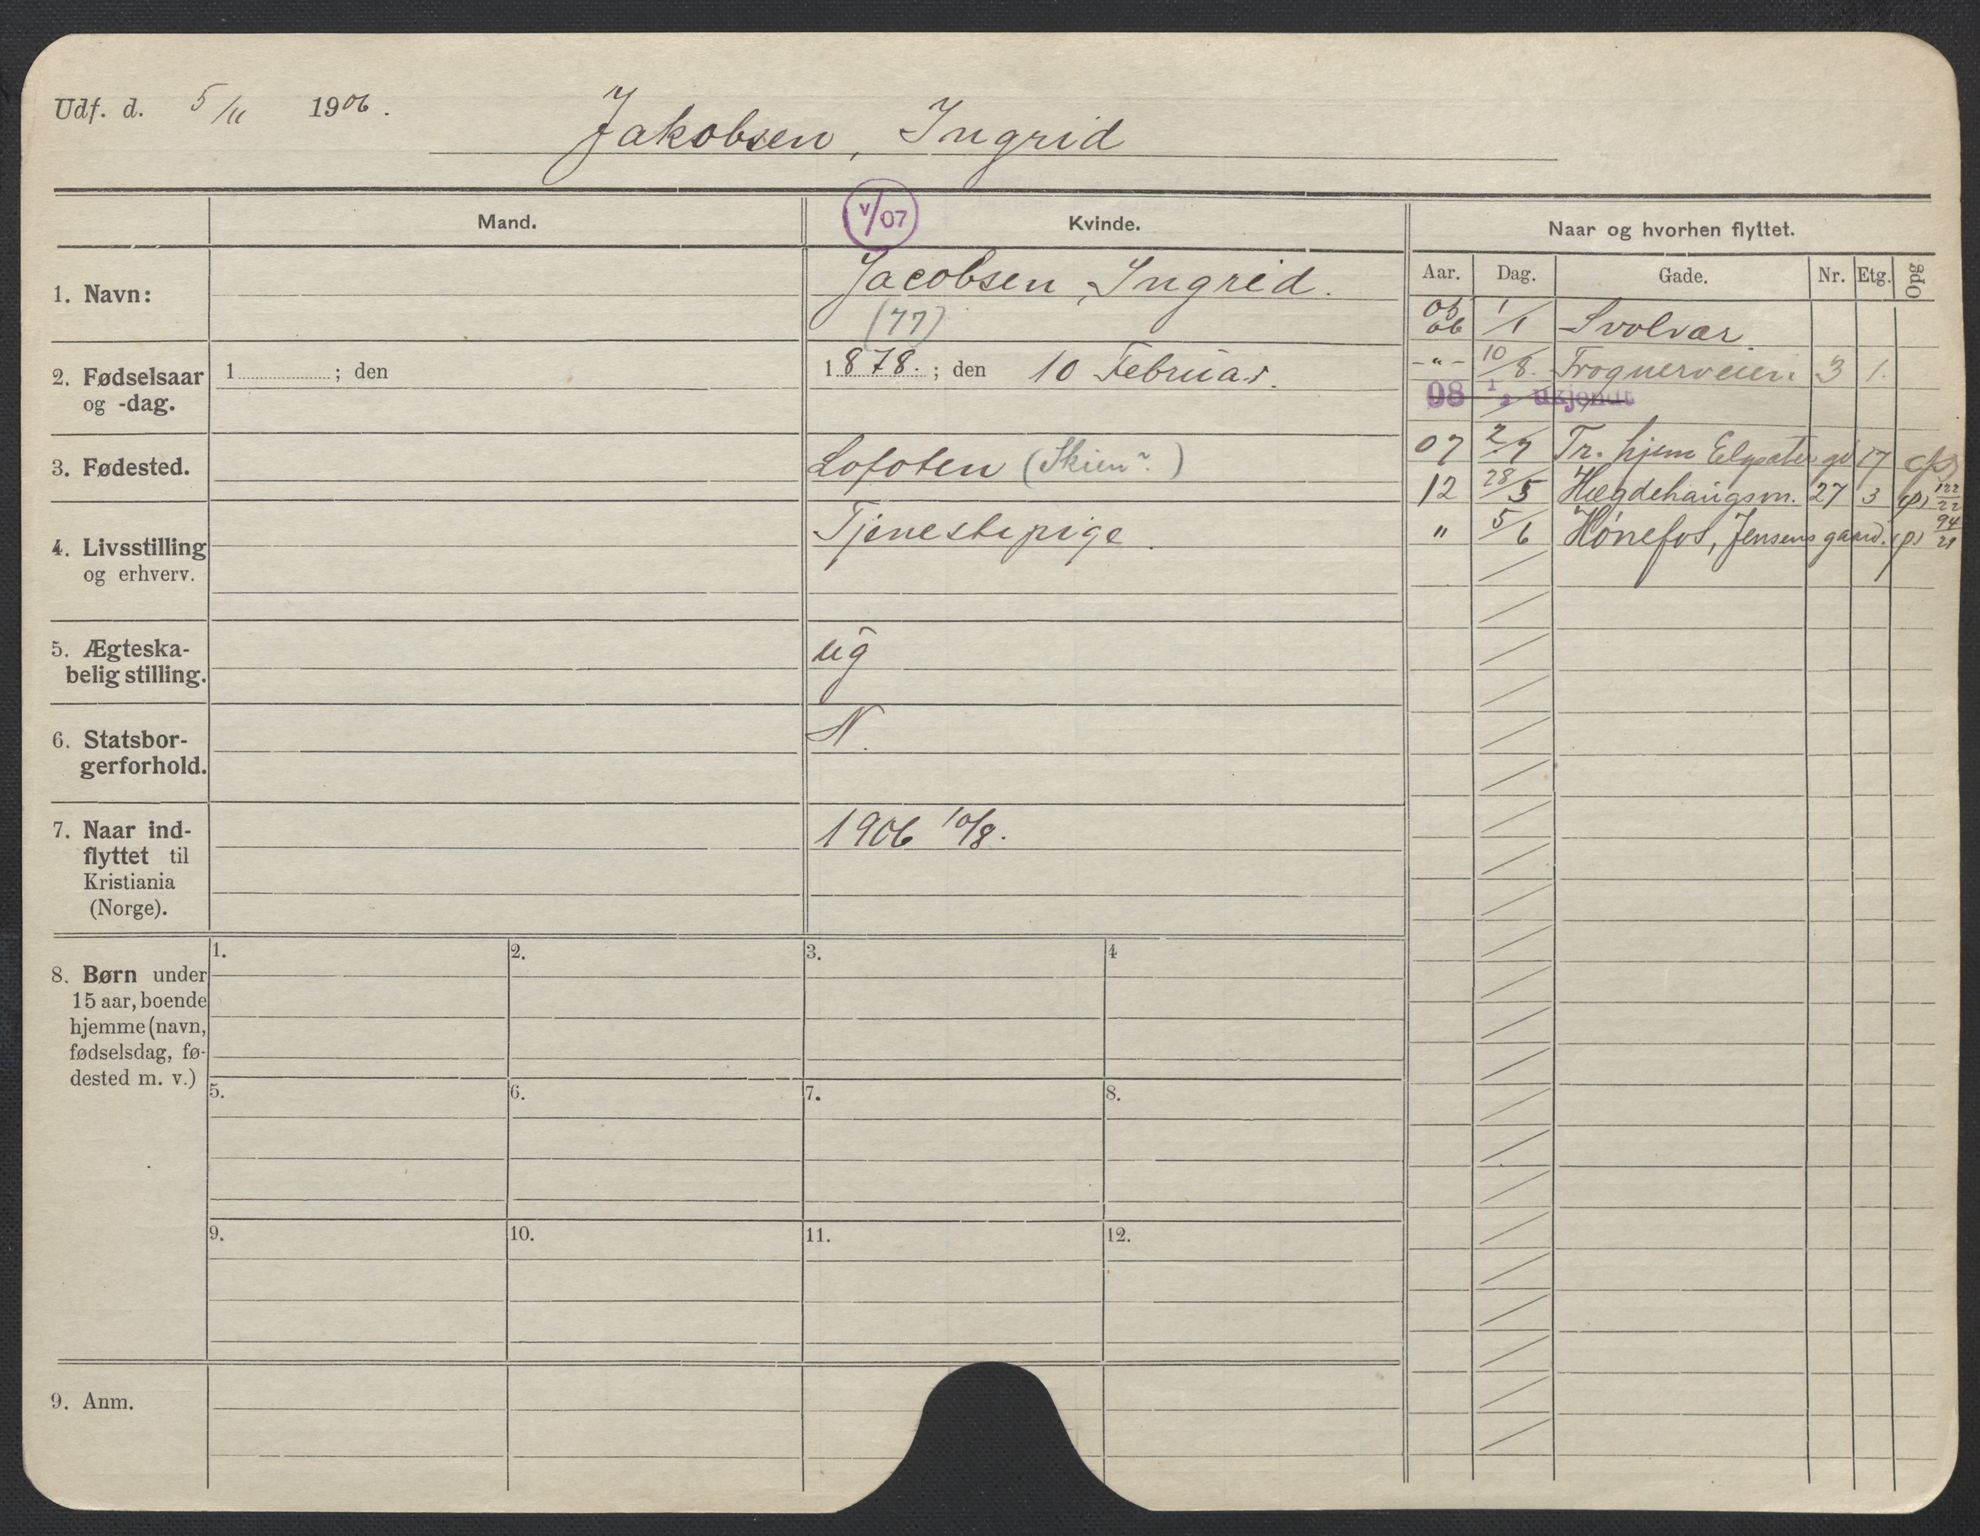 Udf. d. 5/11 1906.
Jakobsen, Ingrid
Mand.
V/07
Kvinde.
Naar og hvorhen flyttet.
Aar. Dag. Gade. Nr. Etg. Opg
1. Navn:
Jacobsen, Ingrid.
(77)
2. Fødselsaar
og -dag.
1 ; den
1878. ; den 10 Februar.
3. Fødested.
Lofoten (Skien?)
4. Livsstilling
og erhverv.
Tjenestepige.
5. Ægteska-
belig stilling.
ug
6. Statsbor-
gerforhold.
N.
7. Naar ind-
flyttet til
Kristiania
(Norge).
1906 10/8.
06 1/1 Svolvær.
-"- 10/8. Frognerveien 3 1.
08 1/2 ukjendt
07 2/7 Tr. hjem 17 (p)
12 28/5 Hægdehaugsvn. 27 3 (p) 122/22
" 5/6 Hønefos, Jensens gaard. (p) 94/21
8. Børn under
15 aar, boende
hjemme (navn,
fødselsdag, fø-
dested m. v.)
1. 2. 3. 4
5. 6. 7. 8.
9. 10. 11. 12.
9. Anm.